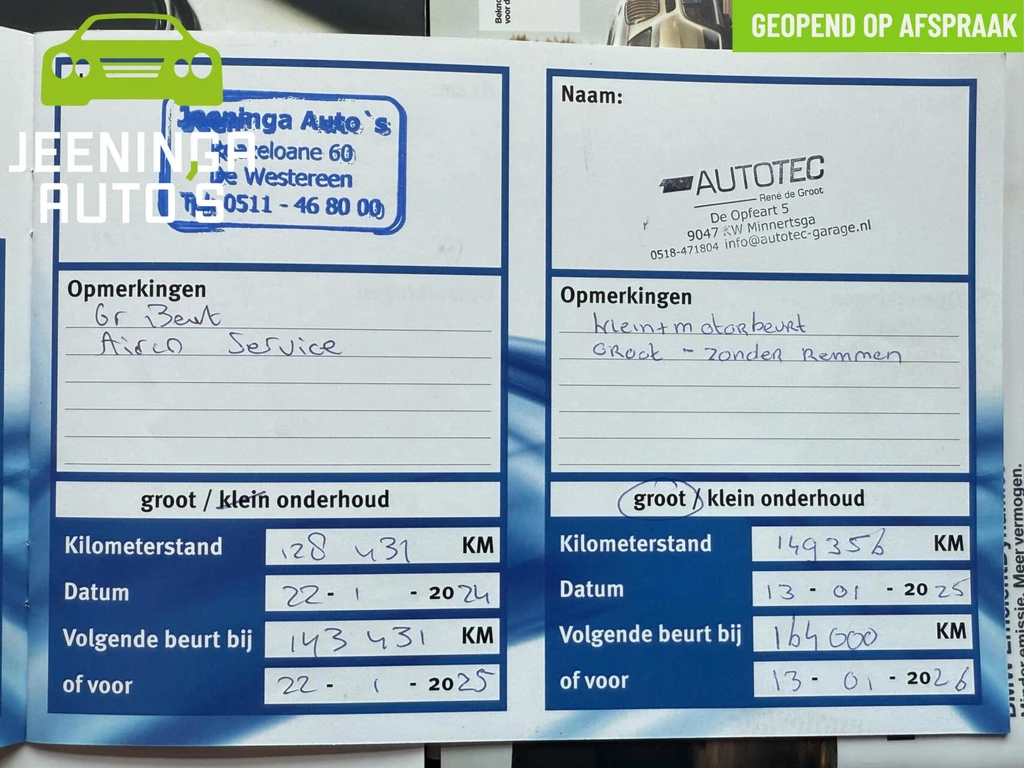 GEOPEND OP AFSPRAAK
JEENINGA
AUTO'S
Jeeninga Auto`s
60
De Westereen
Tel. 0511 - 46 80 00
Opmerkingen
Gr Beurt
Airco Service
groot / klein onderhoud
Kilometerstand 128 431 KM
Datum 22 - 1 - 2024
Volgende beurt bij 143 431 KM
of voor 22 - 1 - 2025
Naam:
AUTOTEC
René de Groot
De Opfeart 5
9047 KW Minnertsga
0518-471804 info@autotec-garage.nl
Opmerkingen
klein+motorbeurt
GROOt - zonder Remmen
groot / klein onderhoud
Kilometerstand 149356 KM
Datum 13 - 01 - 2025
Volgende beurt bij 164000 KM
of voor 13 - 01 - 2026
Minder emissie. Meer vermogen.